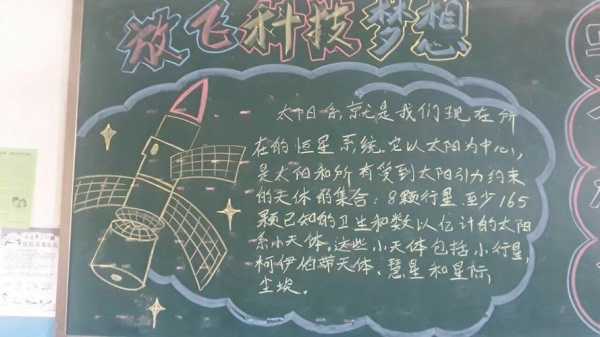 放飞科技梦想
太阳系就是我们现在所
在的恒星系统.它以太阳为中心,
是太阳和所有受到太阳引力约束
的天体的集合:8颗行星至少165
颗已知的卫生和数以亿计的太阳
系小天体.这些小天体包括小行星,
柯伊伯带天体.慧星和星际,
尘埃.